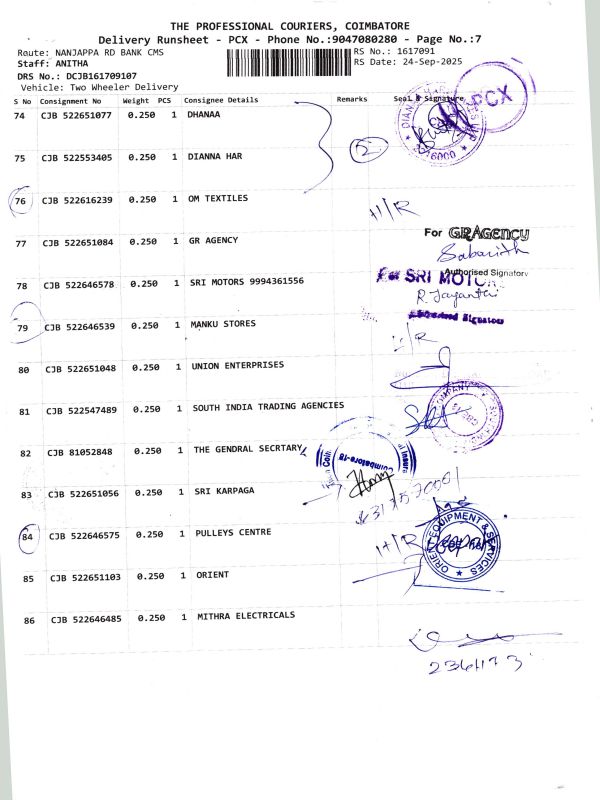 THE PROFESSIONAL COURIERS, COIMBATORE
Delivery Runsheet - PCX - Phone No.:9047080280 - Page No.:7
Route: NANJAPPA RD BANK CMS
RS No.: 1617091
Staff: ANITHA
RS Date: 24-Sep-2025
DRS No.: DCJB161709107
Vehicle: Two Wheeler Delivery
S No Consignment No Weight PCS Consignee Details Remarks Seal & Signature
PCX
74 CJB 522651077 0.250 1 DHANAA
2
75 CJB 522553405 0.250 1 DIANNA HAR
76 CJB 522616239 0.250 1 OM TEXTILES
H/R
For GR AGENCY
77 CJB 522651084 0.250 1 GR AGENCY
Sabarinth
Authorised Signatory
78 CJB 522646578 0.250 1 SRI MOTORS 9994361556
For SRI MOTORS
R. Jayanthi
Authorised Signatory
79 CJB 522646539 0.250 1 MANKU STORES
H/R
80 CJB 522651048 0.250 1 UNION ENTERPRISES
81 CJB 522547489 0.250 1 SOUTH INDIA TRADING AGENCIES
82 CJB 81052848 0.250 1 THE GENDRAL SECRTARY
Coimbatore-18
83 CJB 522651056 0.250 1 SRI KARPAGA
84 CJB 522646575 0.250 1 PULLEYS CENTRE
H/R
ORIENT EQUIPMENT & SERVICES
85 CJB 522651103 0.250 1 ORIENT
86 CJB 522646485 0.250 1 MITHRA ELECTRICALS